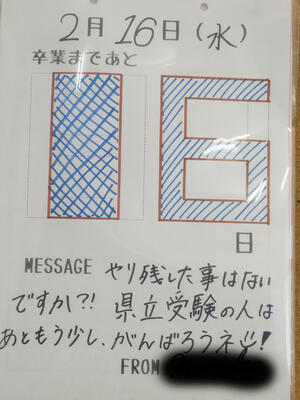 2月16日(水)
卒業まであと
16
日
MESSAGE やり残した事はない
ですか?! 県立受験の人は
あともう少し、がんばろうネ!
FROM